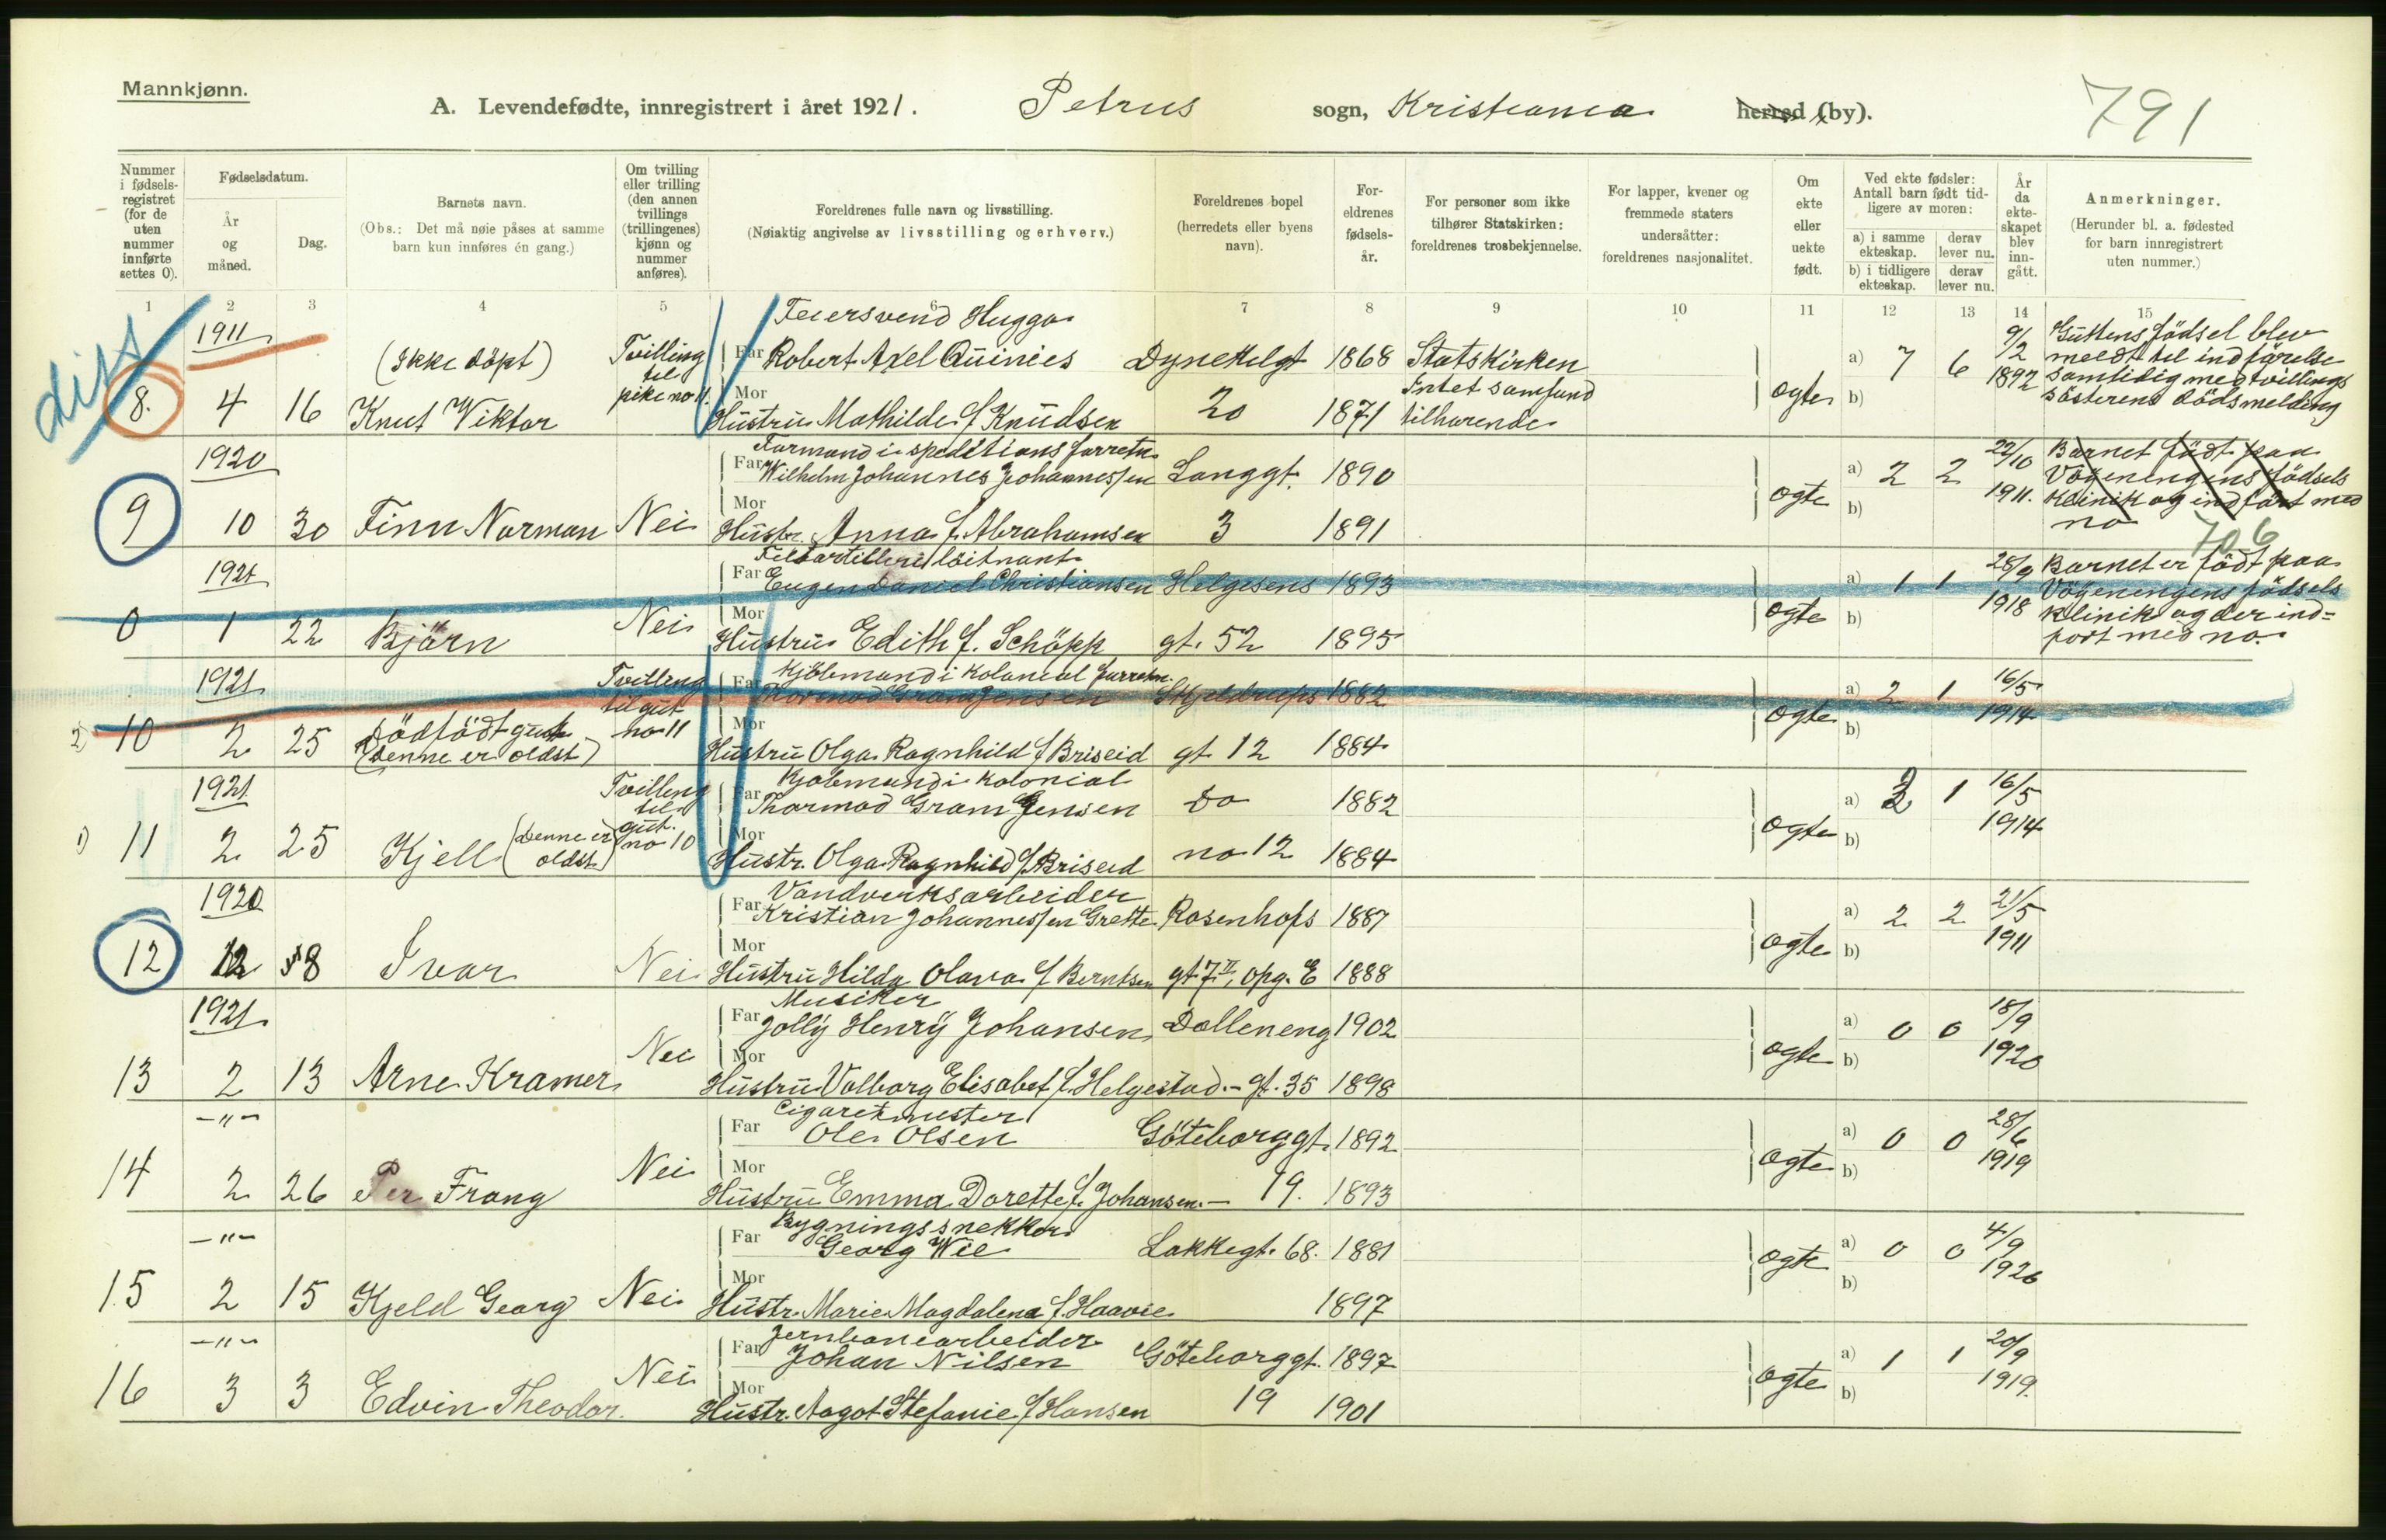 Mannkjønn.
A. Levendefødte, innregistrert i året 1921. Petrus sogn, Kristiania herred (by). 791
Nummer i fødselsregistret (for de uten nummer innførte settes 0).
Fødselsdatum.
År og måned.
Dag.
Barnets navn.
(Obs.: Det må nøie påses at samme barn kun innføres én gang.)
Om tvilling eller trilling (den annen tvillings (trillingenes) kjønn og nummer anføres).
Foreldrenes fulle navn og livsstilling.
(Nøiaktig angivelse av livsstilling og erhverv.)
Foreldrenes bopel (herredets eller byens navn).
Foreldrenes fødselsår.
For personer som ikke tilhører Statskirken: foreldrenes trosbekjennelse.
For lapper, kvener og fremmede staters undersåtter: foreldrenes nasjonalitet.
Om ekte eller uekte født.
Ved ekte fødsler: Antall barn født tidligere av moren:
a) i samme ekteskap. derav lever nu.
b) i tidligere ekteskap. derav lever nu.
År da ekteskapet blev inngått.
Anmerkninger.
(Herunder bl. a. fødested for barn innregistrert uten nummer.)
1 2 3 4 5 6 7 8 9 10 11 12 13 14 15
1911 Feiersvend Hugga
(Ikke döpt) Tvilling til pike no 11. Far Robert Axel Quinies Dynekilgt 1868 Statskirken a) 7 6 9/2 1892
8. 4 16 Knut Viktor Mor Hustru Mathilde f Knudsen 20 1871 Intet samfund tilhørende ogte b)
Guttens födsel blev meldt til indførelse samtidig med tvillings søsterens dödsmelding
1920 Formand i speditions forretn.
Far Wilhelm Johannes Johannessen Langgt. 1890 a) 2 2 22/10 1911.
9 10 30 Finn Norman Nei Mor Hustr. Anna f. Abrahamsen 3 1891 ogte b)
Barnet födt paa Vögeningens födsels klinik og indfört med no 706
1921 Feltartilleri löitnant
Far Eugen Daniel Christiansen Helgesens 1893 a) 1 1 28/9 1918
0 1 22 Björn Nei Mor Hustru Edith f. Schöpp gt. 52 1895 ogte b)
Barnet er födt paa Vögeningens födsels klinik og der indført med no.
1921 Tvilling til gut no 11 Kjöbmand i kolonial forretn.
Far Thormod Gram Jensen Skjeldrups 1882 a) 2 1 16/5 1914
2) 10 2 25 Dödfödt gut (denne er oldst) Mor Hustru Olga Ragnhild f Briseid gt 12 1884 ogte b)
1921 Tvilling til gut. no 10 Kjöbmand i kolonial
Far Thormod Gram Jensen do 1882 a) 3 1 16/5 1914
1) 11 2 25 Kjell (denne er oldst) Mor Hustr. Olga Ragnhild f Briseid no 12 1884 ogte b)
1920 Vandverksarbeider
Far Kristian Johannessen Grette Rosenhofs 1887 a) 2 2 21/5 1911
12 12 8 Ivar Nei Mor Hustru Hilda Olava f Berntsen gt 7 II, opg. E 1888 ogte b)
1921 Musiker
Far Jolly Henry Johansen Dælleneng 1902 a) 0 0 18/9 1920
13 2 13 Arne Kramer Nei Mor Hustru Valborg Elisabet f. Helgestad.- gt. 35 1898 ogte b)
-"- Cigaretmester
Far Ole Olsen Göteborggt. 1892 a) 0 0 28/6 1919
14 2 26 Per Frang Nei Mor Hustru Emma Dorette f. Johansen.- 19. 1893 ogte b)
-"- Bygningssnekker
Far Georg Wie Lakkegt. 68. 1881 a) 0 0 4/9 1920
15 2 15 Kjeld Georg Nei Mor Hustr. Marie Magdalena f. Haavie 1897 ogte b)
-"- Jernbanearbeider
Far Johan Nilsen Göteborggt. 1897 a) 1 1 20/9 1919.
16 3 3 Edvin Theodor. Nei Mor Hustr. Aagot Stefanie f Hansen 19 1901 ogte b)